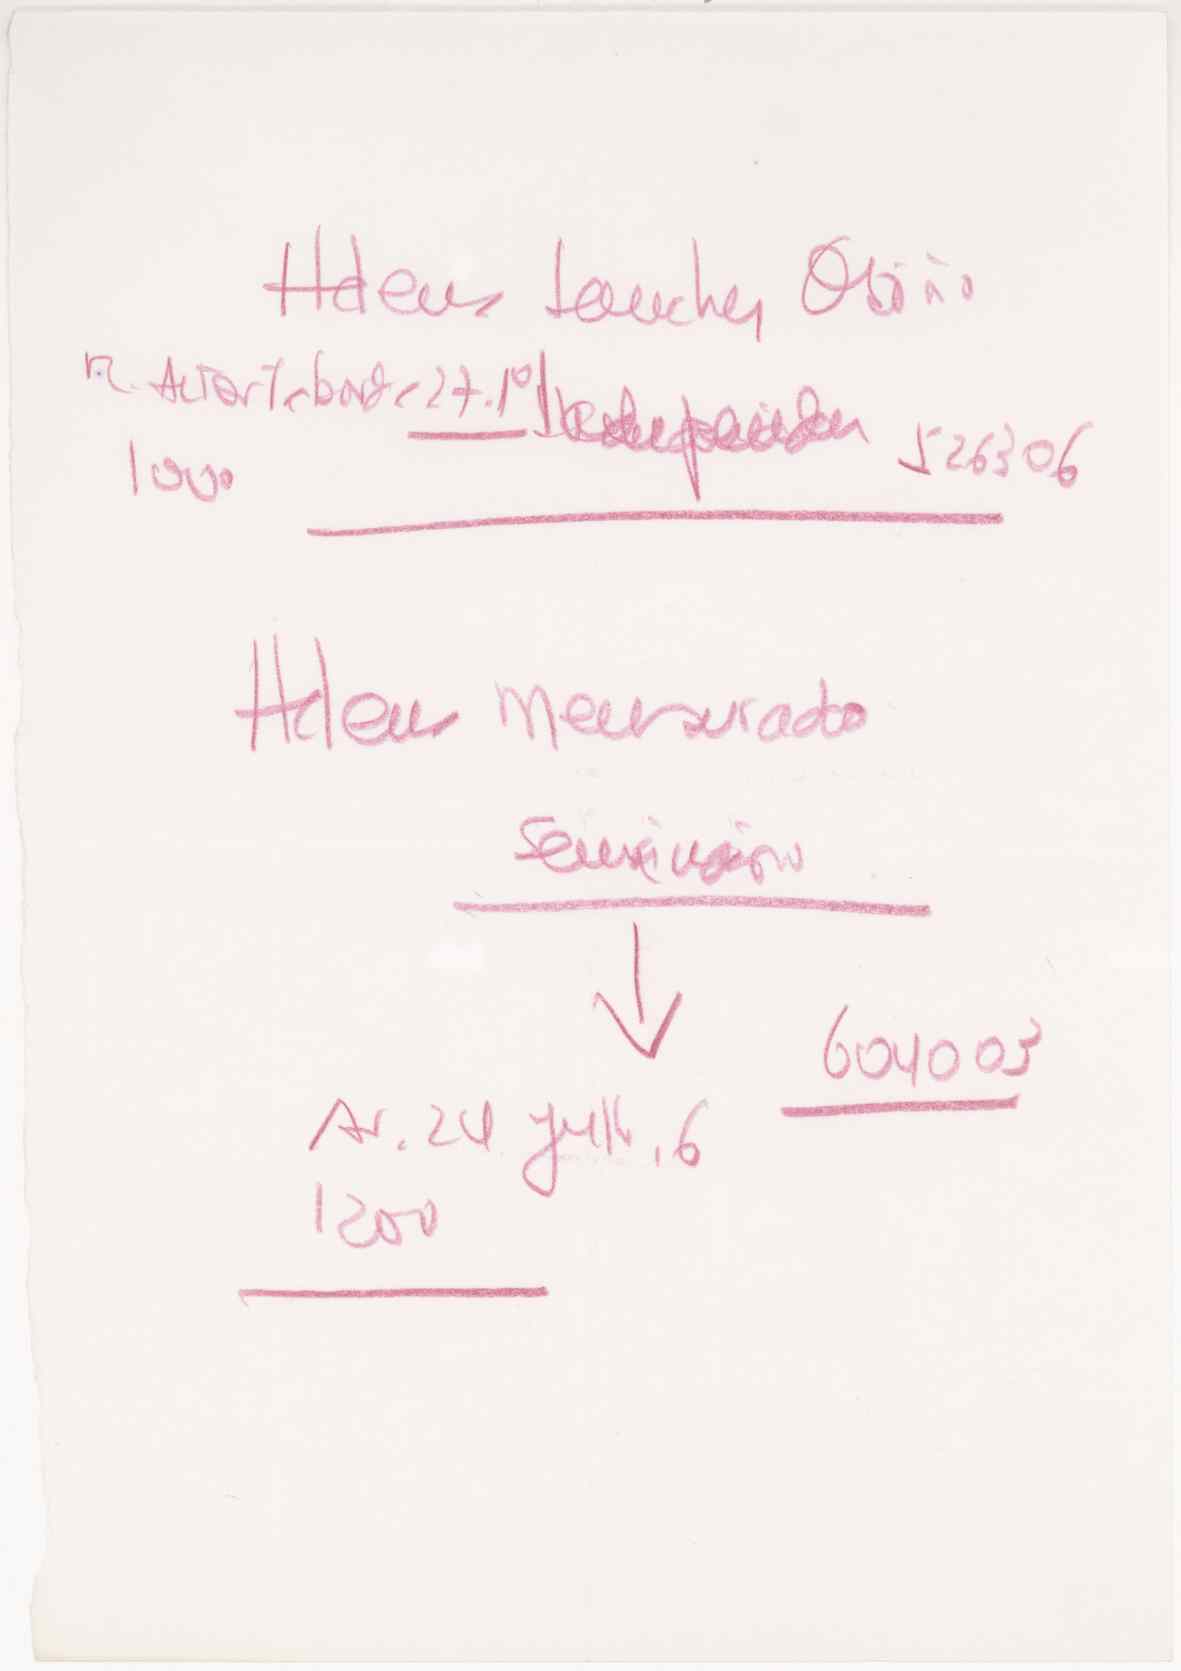 Helena Sanches Osório
R. Actor Taborda 27.1º
526306
1000
Helena Mensurado
Seminário
604003
Av. 24 Julh, 6
1200